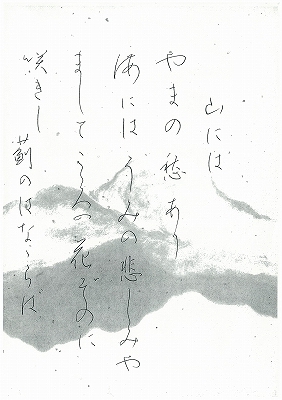 山には
やまの愁あり
海にはうみの悲しみや
ましてこゝろの花ぞのに
咲きし薊のはなゝらば